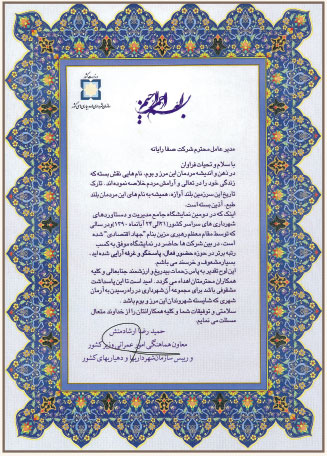 وزارت کشور
سازمان شهرداری‌ها و دهیاری‌های کشور
بسم الله الرحمن الرحیم
مدیر عامل محترم شرکت صفا رایانه
با سلام و تحیات فراوان
در ذهن و اندیشه مردمان این مرز و بوم، نام هایی نقش بسته که
زندگی خود را در تعالی و آرامش مردم خلاصه نموده‌اند. تارک
تاریخ این سرزمین بلند آوازه، همیشه به نام های این مردمان بلند
طبع، آذین بسته است.
اینک که در دومین نمایشگاه جامع مدیریت و دستاوردهای
شهرداری های سراسر کشور (21 الی 24 آبانماه 1390) و در سالی
که توسط مقام معظم رهبری مزین بنام "جهاد اقتصادی" شده
است، در بین شرکت ها حاضر در نمایشگاه موفق به کسب
رتبه برتر در حوزه حضور فعال، پاسخگو و غرفه آرایی شده اید.
بسیار مشعوف و خرسند می باشم.
این لوح تقدیر به پاس زحمات بیدریغ و ارزشمند جنابعالی و کلیه
همکاران محترمتان اهداء می گردد. امید است تا این پاسداشت
مشوقی باشد برای مجموعه آن شهرداری در راه رسیدن به آرمان
شهری که شایسته شهروندان این مرز و بوم باشد.
سلامتی و توفیقات شما و کلیه همکارانتان را از خداوند متعال
مسئلت می نمایم.
حمید رضا ارشادمنش
معاون هماهنگی امور عمرانی وزیر کشور
و رییس سازمان شهرداریها و دهیاریهای کشور